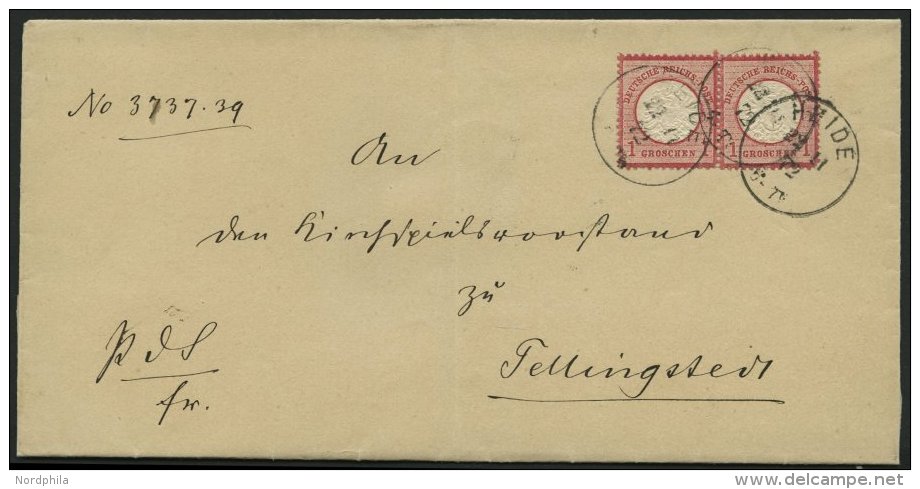 DEUTSCHE REICHS-POST
1 GROSCHEN 1
DEUTSCHE REICHS-POST
1 GROSCHEN 1
HEIDE
No 3737.39
An
den Kirchspielsvorstand
zu
PdS
fr.
Tellingstedt
Nordphila
www.delcampe.net